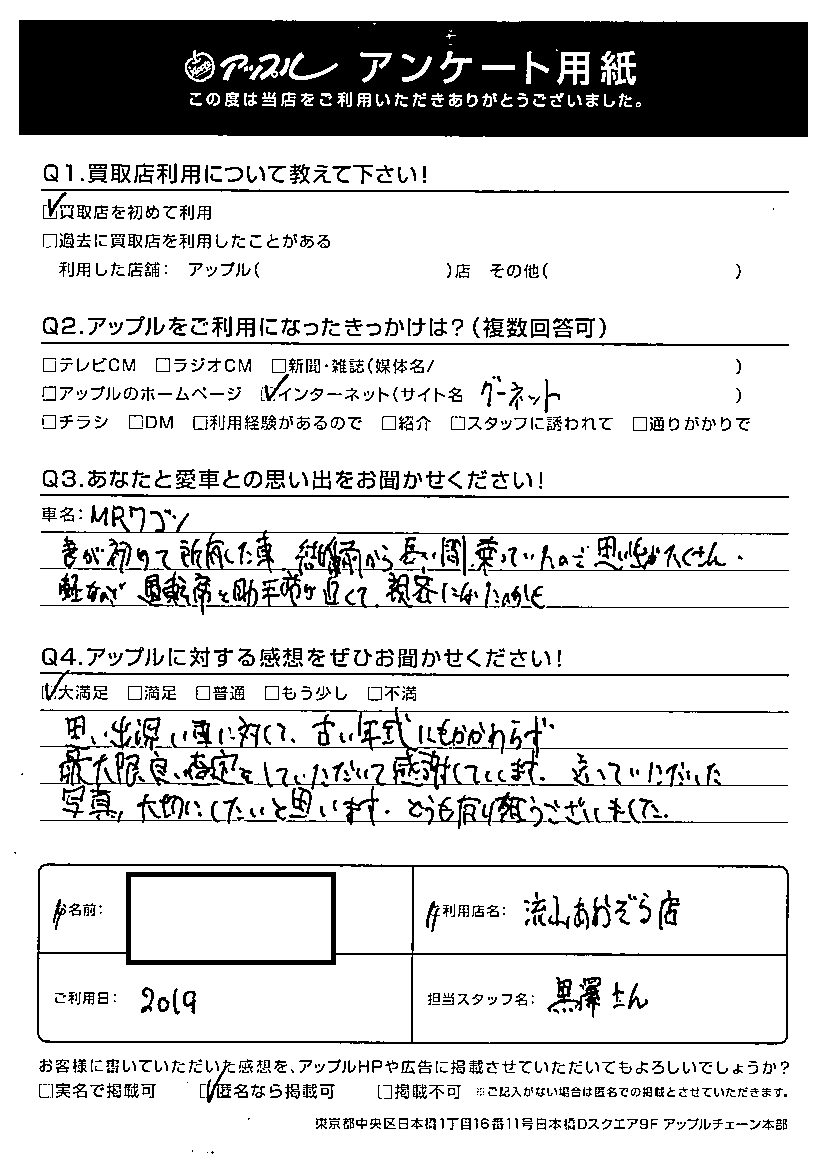 アップル アンケート用紙
この度は当店をご利用いただきありがとうございました。
Q1.買取店利用について教えて下さい!
☑買取店を初めて利用
□過去に買取店を利用したことがある
利用した店舗: アップル( )店 その他( )
Q2.アップルをご利用になったきっかけは?(複数回答可)
□テレビCM □ラジオCM □新聞・雑誌(媒体名/ )
□アップルのホームページ ☑インターネット(サイト名 グーネット )
□チラシ □DM □利用経験があるので □紹介 □スタッフに誘われて □通りがかりで
Q3.あなたと愛車との思い出をお聞かせください!
車名: MRワゴン
妻が初めて所有した車。結婚前から長い間乗っていたので思い出がたくさん。
軽なので運転席と助手席が近くて、親密になれたのかも
Q4.アップルに対する感想をぜひお聞かせください!
☑大満足 □満足 □普通 □もう少し □不満
思い出深い車に対して、古い年式にもかかわらず
最大限良い査定をしていただいて感謝しています。送っていただいた
写真、大切にしたいと思います。どうも有り難うございました。
お名前:
ご利用店名: 流山おおぞら店
ご利用日: 2019
担当スタッフ名: 黒澤さん
お客様に書いていただいた感想を、アップルHPや広告に掲載させていただいてもよろしいでしょうか?
□実名で掲載可 ☑匿名なら掲載可 □掲載不可 ※ご記入がない場合は匿名での掲載とさせていただきます。
東京都中央区日本橋1丁目16番11号日本橋Dスクエア9F アップルチェーン本部